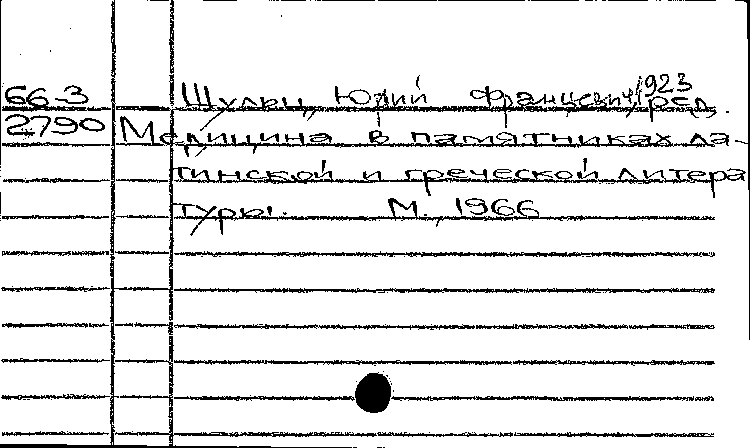 66-3 Шульц, Юрий Францевич, 1923 ред.
2790 Медицина в памятниках ла-
тинской и греческой литера
туры. М., 1966